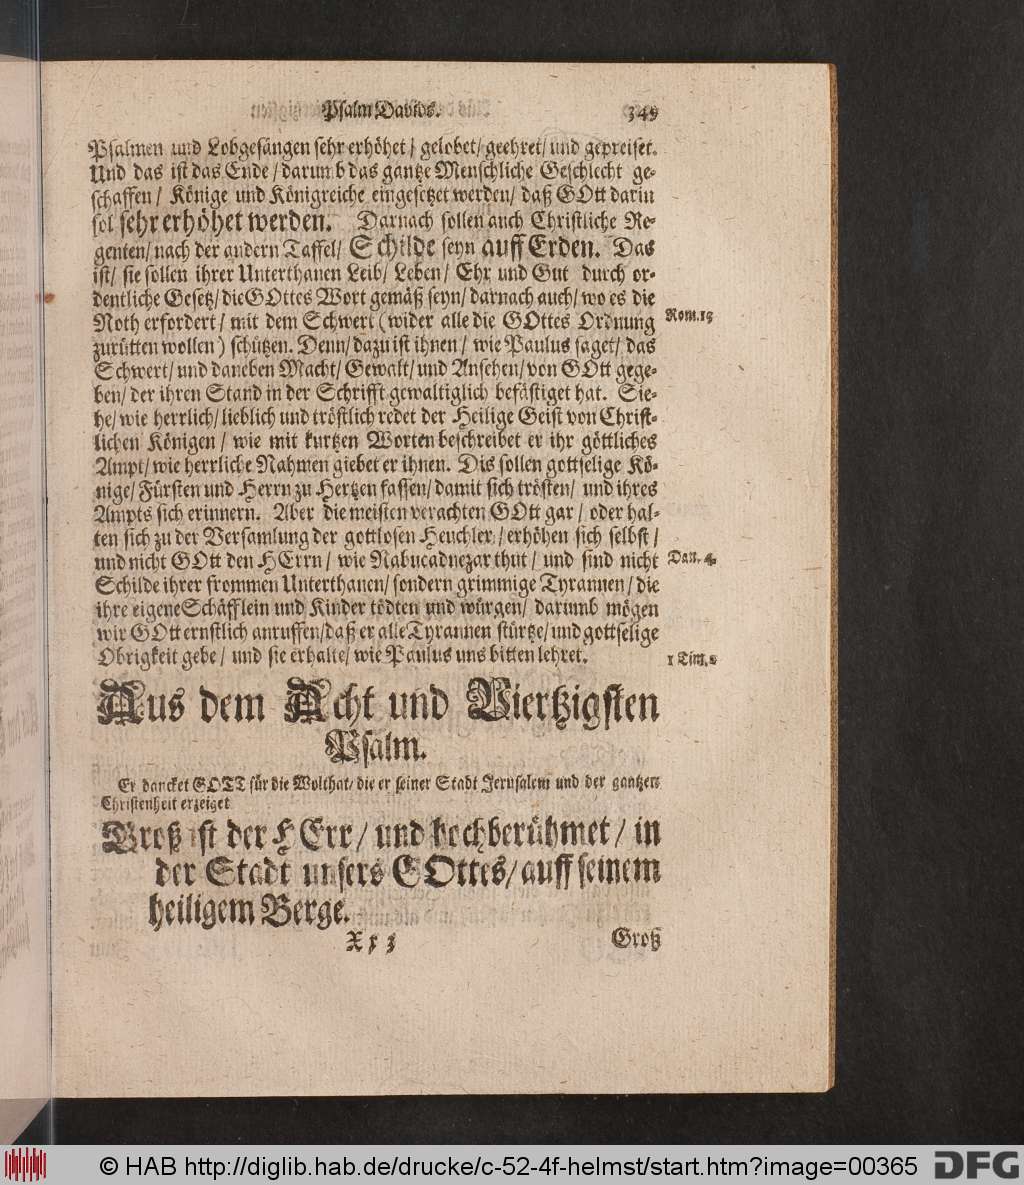 Psalm Davids. 349
Psalmen und Lobgesängen sehr erhöhet / gelobet / geehret / und gepreiset.
Und das ist das Ende / darumb das gantze Menschliche Geschlecht ge-
schaffen / Könige und Königreiche eingesetzet werden / daß GOtt darin
sol sehr erhöhet werden. Darnach sollen auch Christliche Re-
genten / nach der andern Taffel / Schilde seyn auff Erden. Das
ist / sie sollen ihrer Unterthanen Leib / Leben / Ehr und Gut durch or-
dentliche Gesetz / die GOttes Wort gemäß seyn / darnach auch / wo es die
Noth erfordert / mit dem Schwert (wider alle die GOttes Ordnung Rom. 13
zurütten wollen) schützen. Denn / dazu ist ihnen / wie Paulus saget / das
Schwert / und daneben Macht / Gewalt / und Ansehen / von GOtt gege-
ben / der ihren Stand in der Schrifft gewaltiglich befästiget hat. Sie-
he / wie herrlich / lieblich und tröstlich redet der Heilige Geist von Christ-
lichen Königen / wie mit kurtzen Worten beschreibet er ihr göttliches
Ampt / wie herrliche Nahmen giebet er ihnen. Dis sollen gottselige Kö-
nige / Fürsten und Herrn zu Hertzen fassen / damit sich trösten / und ihres
Ampts sich erinnern. Aber die meisten verachten GOtt gar / oder hal-
ten sich zu der Versamlung der gottlosen Heuchler / erhöhen sich selbst /
und nicht GOtt den HErrn / wie Nabucadnezar thut / und sind nicht Dan. 4.
Schilde ihrer frommen Unterthanen / sondern grimmige Tyrannen / die
ihre eigene Schäfflein und Kinder tödten und würgen / darumb mögen
wir GOtt ernstlich anruffen / daß er alle Tyrannen stürtze / und gottselige
Obrigkeit gebe / und sie erhalte / wie Paulus uns bitten lehret. 1 Tim. 2
Aus dem Acht und Viertzigsten
Psalm.
Er dancket GOTT für die Wolthat / die er seiner Stadt Jerusalem und der gantzen
Christenheit erzeiget
Groß ist der HErr / und hochberühmet / in
der Stadt unsers GOttes / auff seinem
heiligem Berge.
X x 3 Groß
© HAB http://diglib.hab.de/drucke/c-52-4f-helmst/start.htm?image=00365 DFG